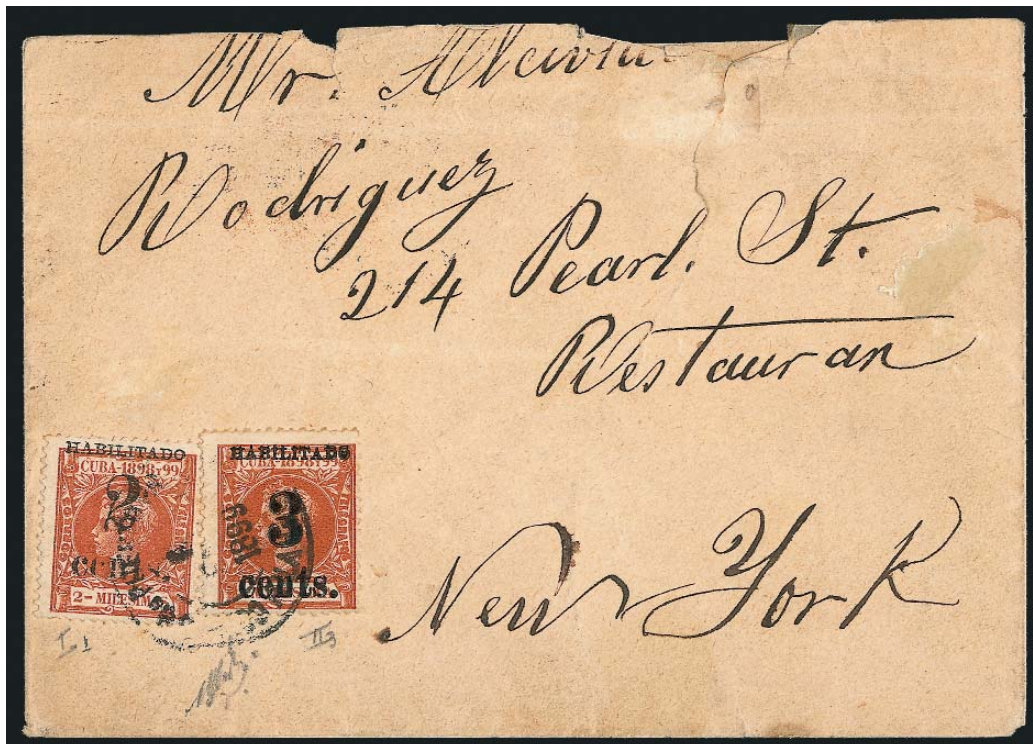 Mr.
Rodriguez
214 Pearl. St.
Restauran
New York
HABILITADO
CUBA-1898 Y 99
2
cents.
2-MILESIMAS
HABILITADO
CUBA-1898 Y 99
3
cents.
1899
I 1
II 3